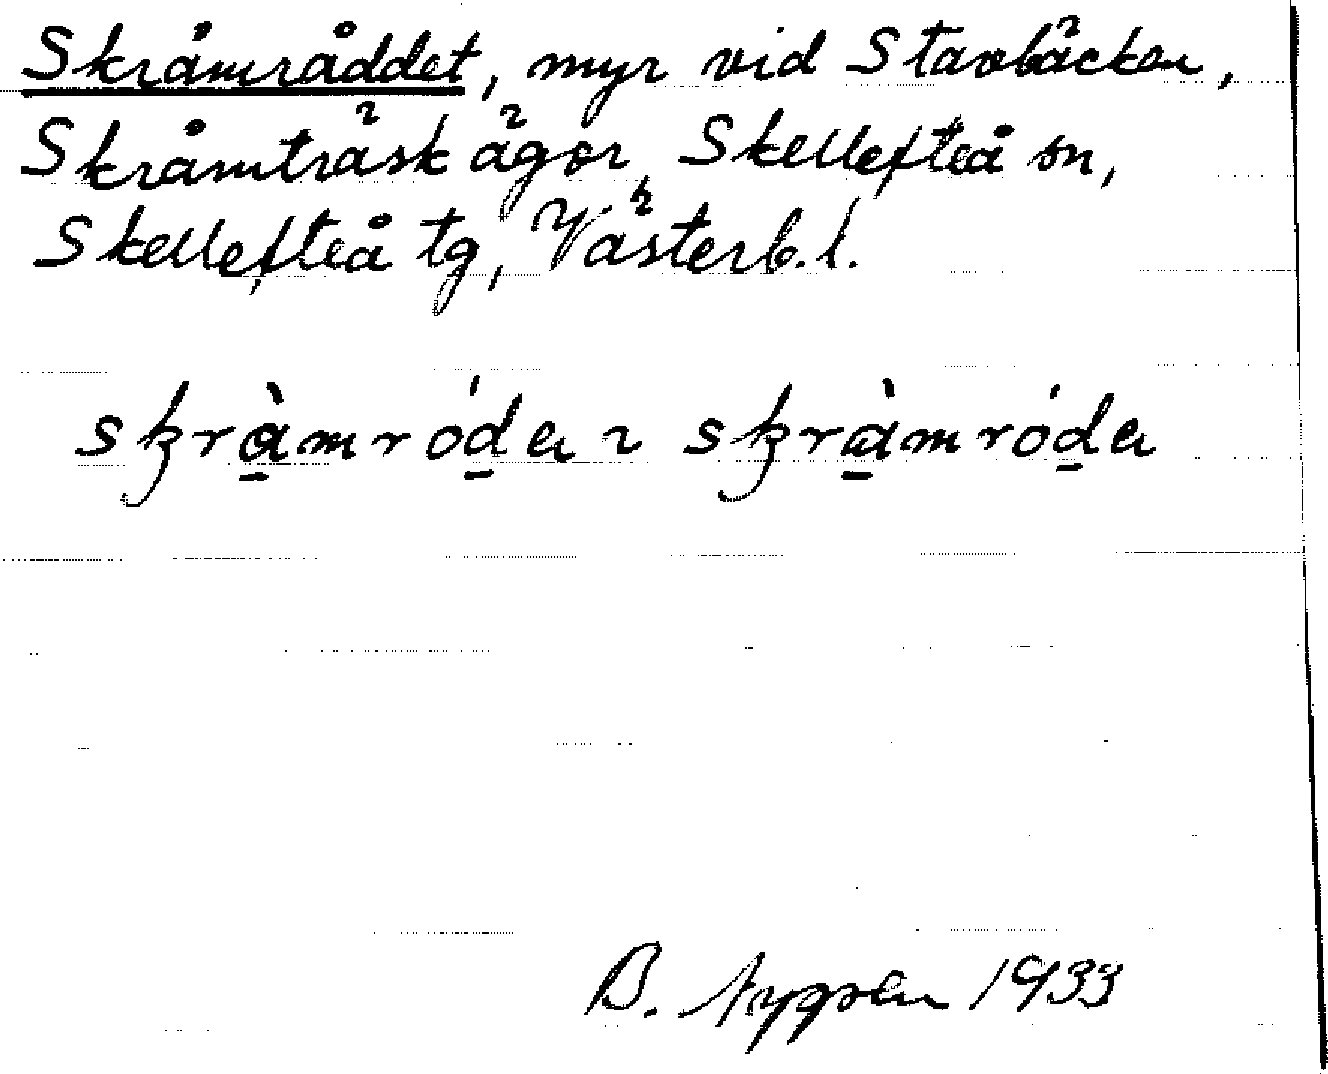 Skråmråddet, myr vid Stavbäcken,
Skråmträsk ägor, Skellefteå sn,
Skellefteå tg, Västerb. l.
skràmródɛ ~ skràmródɛ
B. 1933